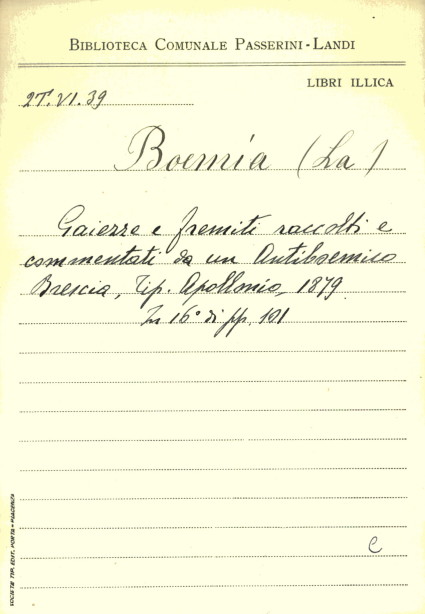 BIBLIOTECA COMUNALE PASSERINI-LANDI
LIBRI ILLICA
27.VI.39
Boemia (La)
Gaiezze e fremiti raccolti e
commentati da un Antiboemico
Brescia, Tip. Apollonio, 1879
In 16° di pp. 191
C
SOCIETÀ TIP. EDIT. PORTA - PIACENZA